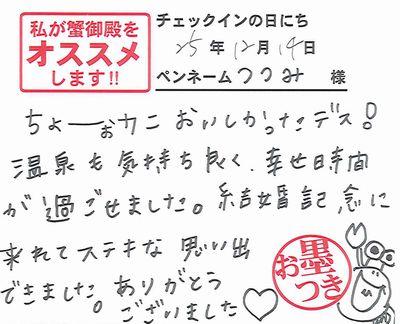 私が蟹御殿を
オススメ
します!!
チェックインの日にち
25年12月14日
ペンネーム つつみ 様
ちょーーぉカニ おいしかったデス!
温泉も気持ち良く、幸せ時間
が過ごせました。結婚記念に
来れてステキな思い出
できました。ありがとう
ございました♡
お墨
つき